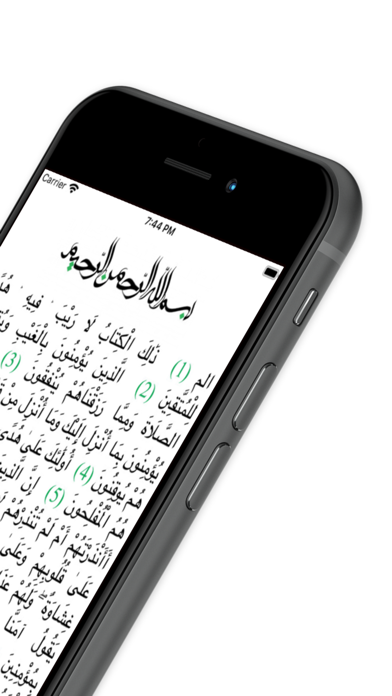 Carrier
7:44 PM
بسم الله الرحمن الرحيم
الم (1) ذَلِكَ الْكِتَابُ لَا رَيْبَ فِيهِ
لِلْمُتَّقِينَ (2) الَّذِينَ يُؤْمِنُونَ بِالْغَيْبِ
الصَّلَاةَ وَمِمَّا رَزَقْنَاهُمْ يُنْفِقُونَ (3)
يُؤْمِنُونَ بِمَا أُنْزِلَ إِلَيْكَ وَمَا أُنْزِلَ مِنْ
هُمْ يُوقِنُونَ (4) أُولَئِكَ عَلَى هُدًى
هُمُ الْمُفْلِحُونَ (5) إِنَّ الَّذِينَ
أَأَنْذَرْتَهُمْ أَمْ لَمْ تُنْذِرْهُمْ
عَلَى قُلُوبِهِمْ وَعَلَى
غِشَاوَةٌ وَلَهُمْ
يَقُولُ آمَنَّا
بِمُؤْمِنِينَ